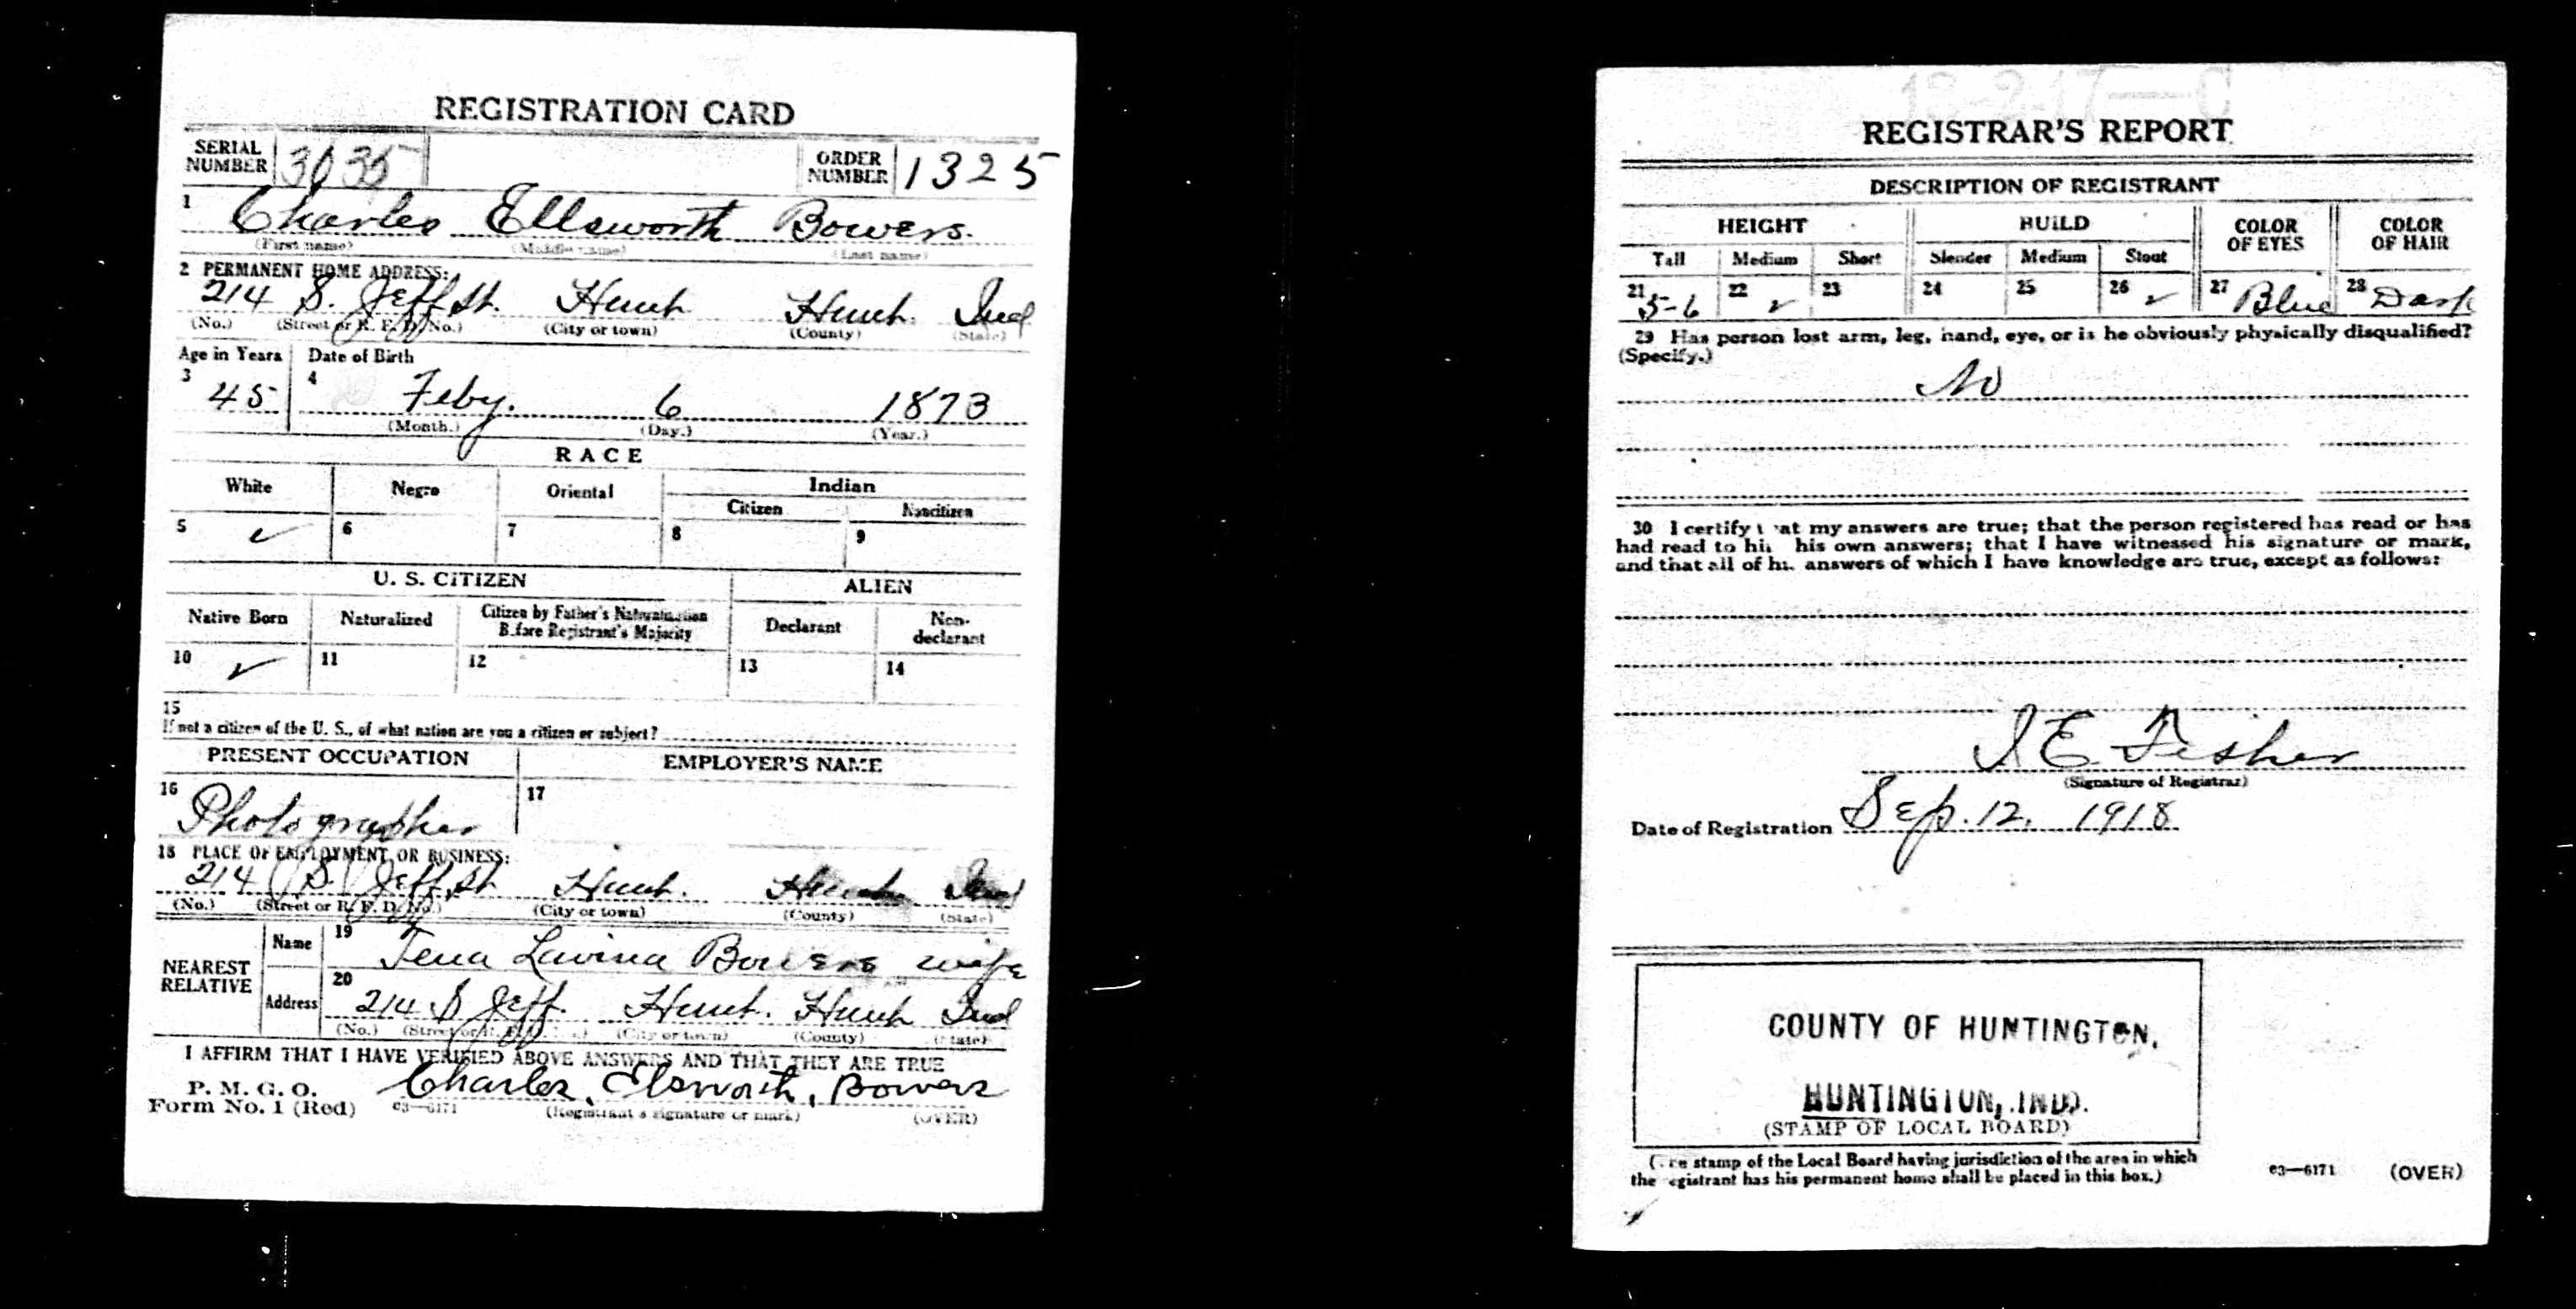 REGISTRATION CARD
SERIAL NUMBER 3035 ORDER NUMBER 1325
1 Charles Ellsworth Bowers.
(First name) (Middle name) (Last name)
2 PERMANENT HOME ADDRESS:
214 S. Jeff St. Hunt Hunt. Ind
(No.) (Street or R. F. D. No.) (City or town) (County) (State)
Age in Years Date of Birth
3 45 4 Feby. 6 1873
(Month.) (Day.) (Year.)
RACE
White Negro Oriental Indian
Citizen Noncitizen
5 ✓ 6 7 8 9
U. S. CITIZEN ALIEN
Native Born Naturalized Citizen by Father's Naturalization Before Registrant's Majority Declarant Non-declarant
10 ✓ 11 12 13 14
15
If not a citizen of the U. S., of what nation are you a citizen or subject?
PRESENT OCCUPATION EMPLOYER'S NAME
16 Photographer 17
18 PLACE OF EMPLOYMENT OR BUSINESS:
214 S. Jeff St. Hunt. Hunt Ind
(No.) (Street or R. F. D. No.) (City or town) (County) (State)
NEAREST RELATIVE
Name 19 Tena Lavina Bowers wife
Address 20 214 S Jeff. Hunt. Hunt Ind
(No.) (Street or R. F. D. No.) (City or town) (County) (State)
I AFFIRM THAT I HAVE VERIFIED ABOVE ANSWERS AND THAT THEY ARE TRUE
P. M. G. O.
Form No. 1 (Red) 03—6171 Charles, Elsworth, Bowers
(Registrant's signature or mark) (OVER)
REGISTRAR'S REPORT
DESCRIPTION OF REGISTRANT
HEIGHT BUILD COLOR OF EYES COLOR OF HAIR
Tall Medium Short Slender Medium Stout
21 5-6 22 ✓ 23 24 25 26 ✓ 27 Blue 28 Dark
29 Has person lost arm, leg, hand, eye, or is he obviously physically disqualified?
(Specify.)
No
30 I certify that my answers are true; that the person registered has read or has
had read to him his own answers; that I have witnessed his signature or mark,
and that all of his answers of which I have knowledge are true, except as follows:
I E Fisher
(Signature of Registrar)
Date of Registration Sep. 12. 1918
COUNTY OF HUNTINGTON,
HUNTINGTON, IND.
(STAMP OF LOCAL BOARD)
(The stamp of the Local Board having jurisdiction of the area in which
the registrant has his permanent home shall be placed in this box.)
03—6171 (OVER)